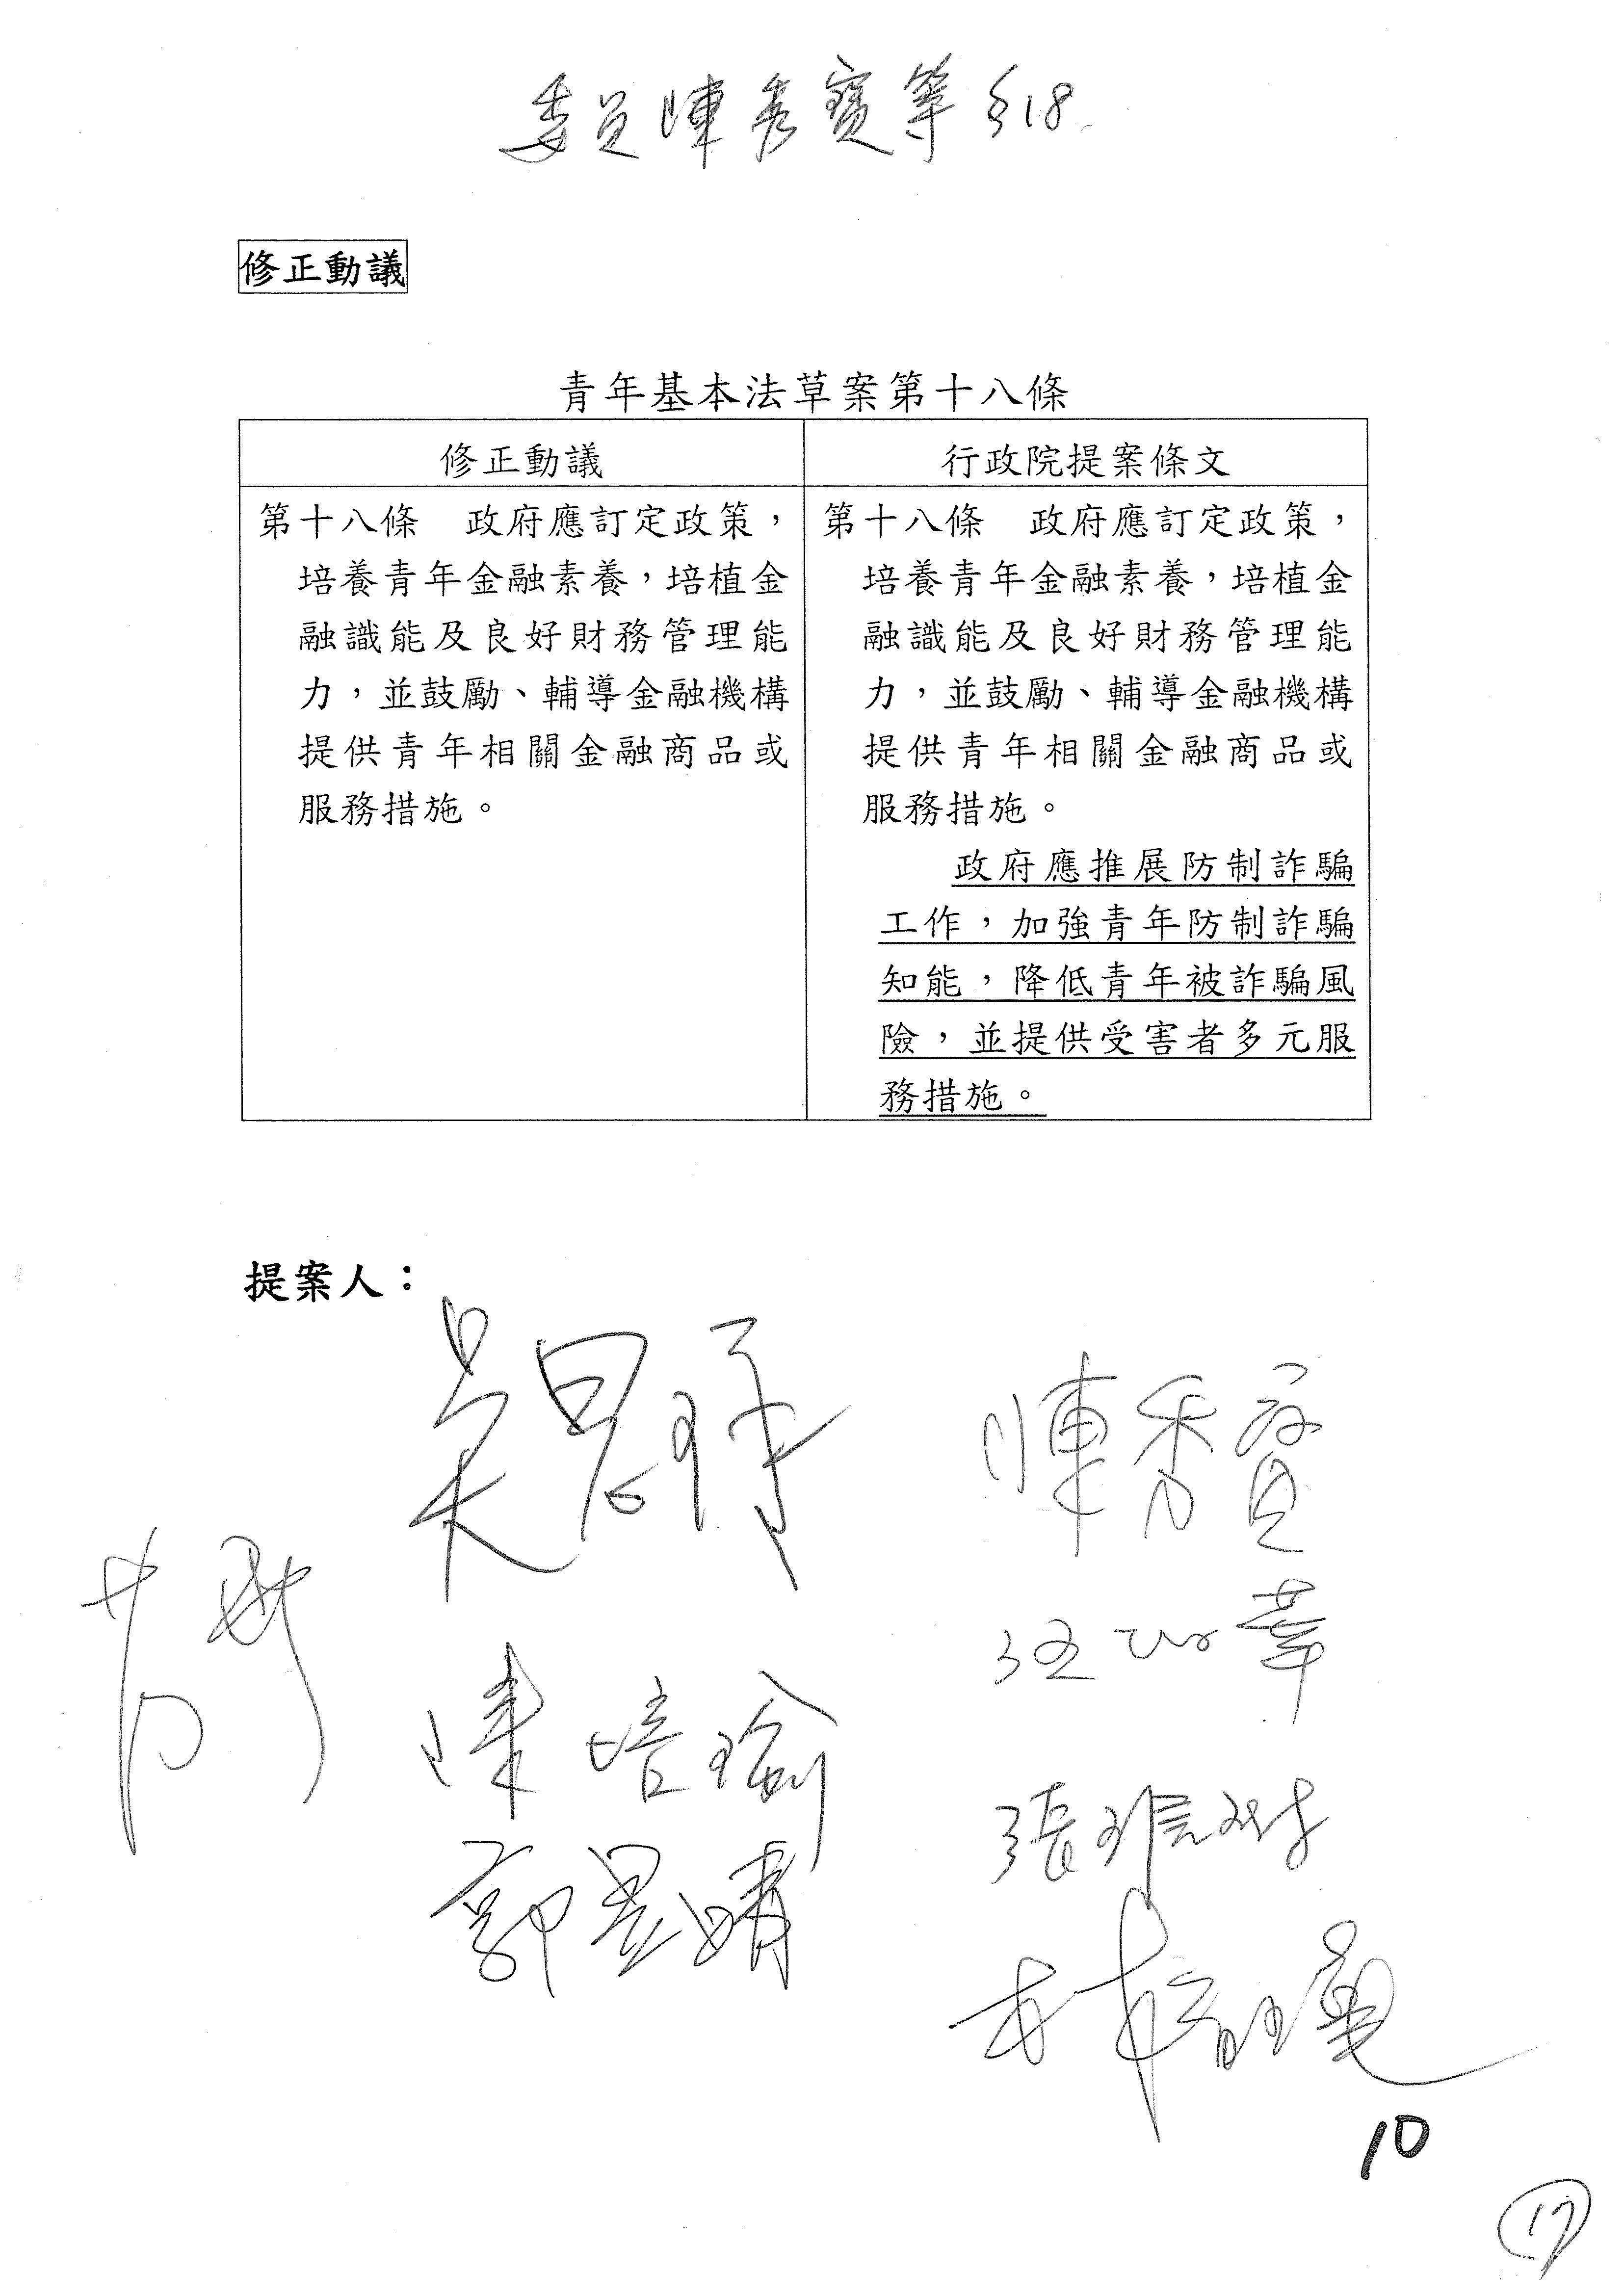 委員陳秀寳等§18
修正動議
青年基本法草案第十八條
修正動議
行政院提案條文
第十八條　政府應訂定政策，
培養青年金融素養，培植金
融識能及良好財務管理能
力，並鼓勵、輔導金融機構
提供青年相關金融商品或
服務措施。
第十八條　政府應訂定政策，
培養青年金融素養，培植金
融識能及良好財務管理能
力，並鼓勵、輔導金融機構
提供青年相關金融商品或
服務措施。
政府應推展防制詐騙
工作，加強青年防制詐騙
知能，降低青年被詐騙風
險，並提供受害者多元服
務措施。
提案人：
吳思瑤
陳秀寳
范雲
陳培瑜
郭昱晴
張雅琳
林宜瑾
10
17